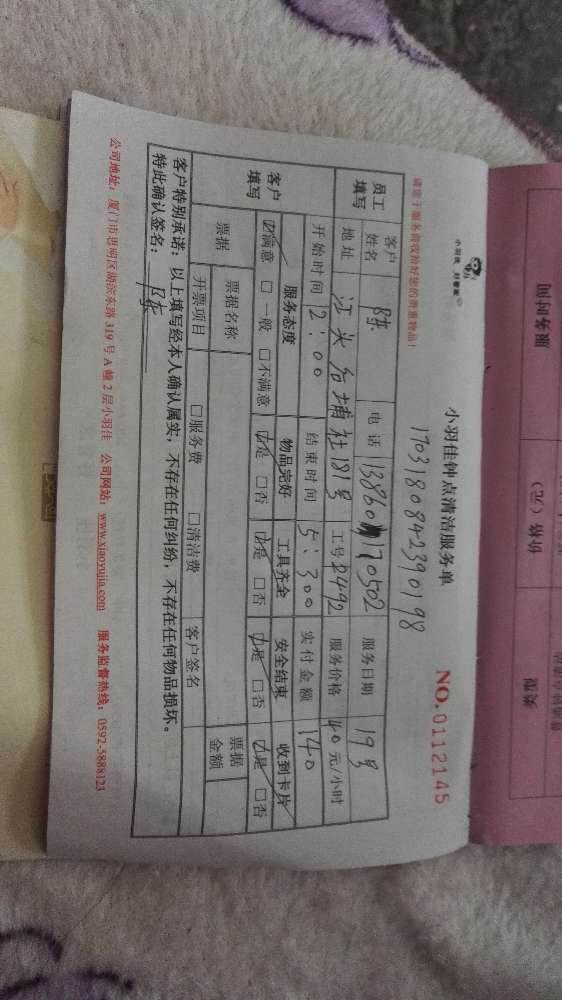 小羽佳 好管家
小羽佳钟点清洁服务单
NO.0112145
17031808423901​98
请您于服务前收拾好您的贵重物品!
员工填写 客户姓名 陈 电话 13860170502 服务日期 19号
地址 江头台埔社181号 工号 2492 服务价格 40元/小时
开始时间 2:00 结束时间 5:300 实付金额 140
客户填写 服务态度 物品完好 工具齐全 安全结束 收到卡片
☑满意 □一般 □不满意 ☑是 □否 ☑是 □否 ☑是 □否 ☑是 □否
票据 票据名称 票据金额
开票项目 □服务费 □清洁费 客户签名
客户特别承诺:以上填写经本人确认属实,不存在任何纠纷,不存在任何物品损坏。
特此确认签名:陈
公司地址:厦门市思明区湖滨东路319号A幢2层小羽佳 公司网站:www.xiaoyujia.com 服务监督热线:0592-5888123
服务时间
价格(元)